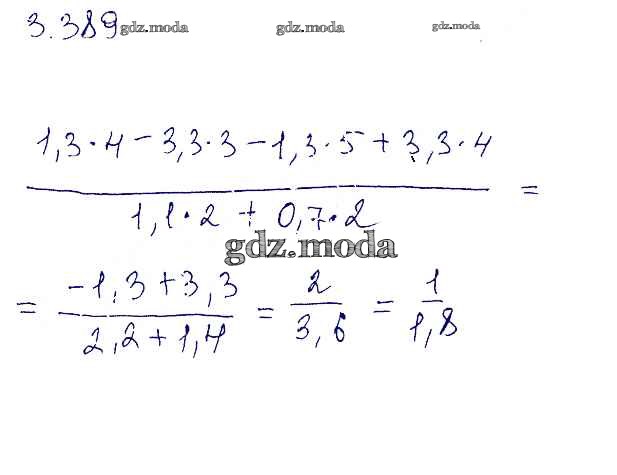 3.389 gdz.moda gdz.moda gdz.moda
1,3·4 − 3,3·3 − 1,3·5 + 3,3·4
=
1,1·2 + 0,7·2
gdz.moda
= −1,3 + 3,3 / 2,2 + 1,4 = 2 / 3,6 = 1 / 1,8